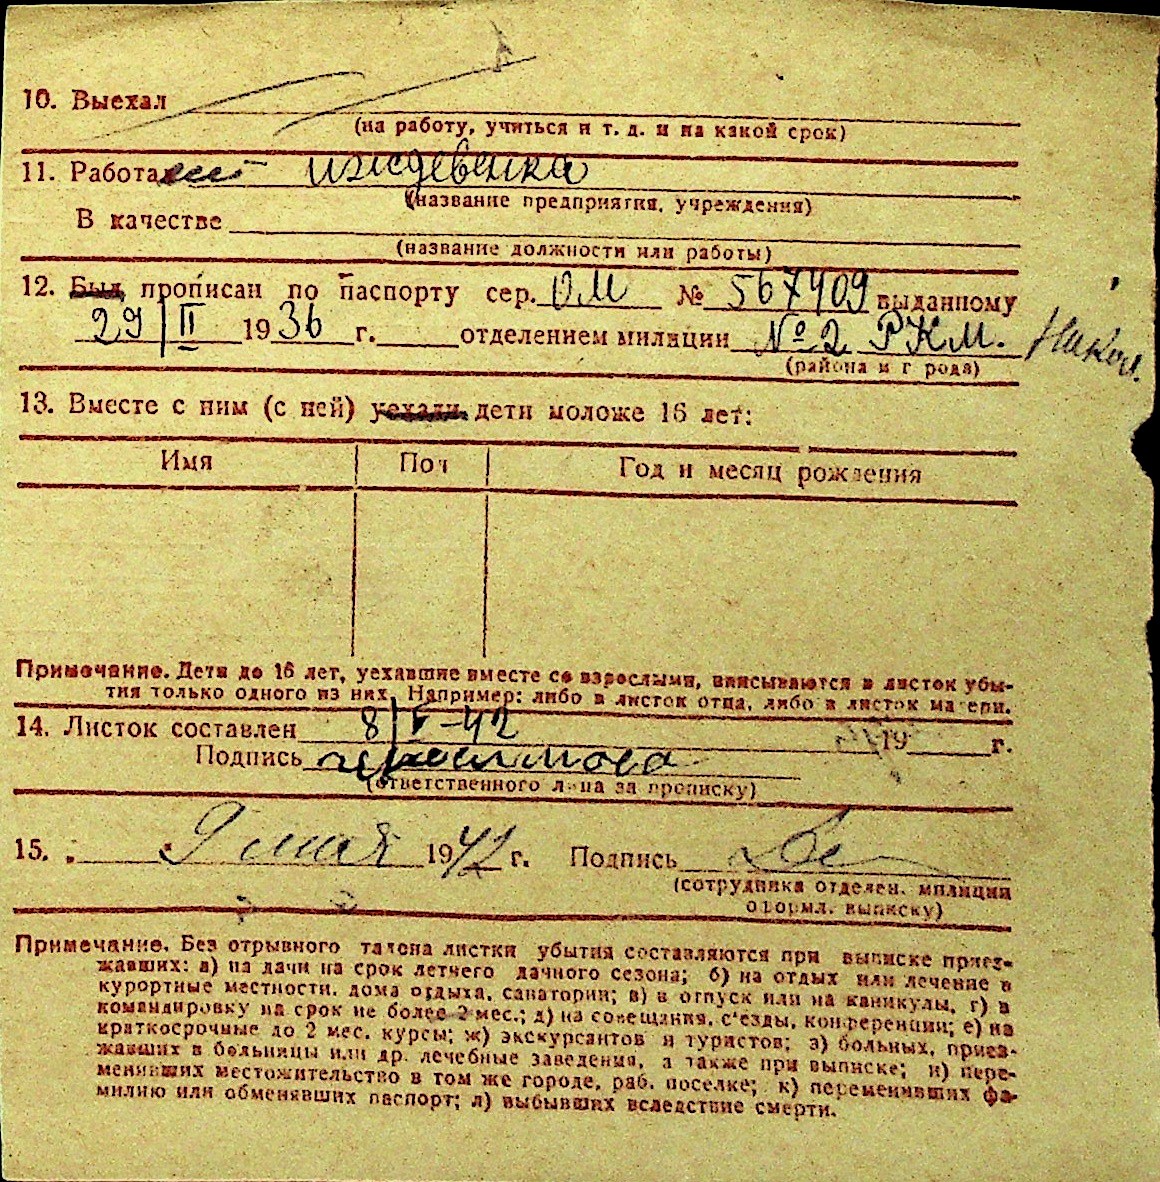 10. Выехал
(на работу, учиться и т. д. и на какой срок)
11. Работает иждевенка
(название предприятия, учреждения)
В качестве
(название должности или работы)
12. Был прописан по паспорту сер. ОМ № 567409 выданному
29/II 1936 г. отделением милиции № 2 Р.К.М. Никол.
(района и г рода)
13. Вместе с ним (с ней) уехали дети моложе 16 лет:
Имя Пол Год и месяц рождения
Примечание. Дети до 16 лет, уехавшие вместе со взрослыми, вписываются в листок убы-
тия только одного из них. Например: либо в листок отца, либо в листок ма ери.
14. Листок составлен 8/V-42 19 г.
Подпись Герасимова
(ответственного лица за прописку)
15. 9 мая 1942 г. Подпись
(сотрудника отделен. милиции
оформл. выписку)
Примечание. Без отрывного талона листки убытия составляются при выписке приез-
жавших: а) на дачи на срок летнего дачного сезона; б) на отдых или лечение в
курортные местности, дома отдыха, санатории; в) в отпуск или на каникулы, г) в
командировку на срок не более 2 мес.; д) на совещания, с'езды, конференции; е) на
краткосрочные до 2 мес. курсы; ж) экскурсантов и туристов; з) больных, приез-
жавших в больницы или др. лечебные заведения, а также при выписке; и) пере-
менивших местожительство в том же городе, раб. поселке; к) переменивших фа-
милию или обменявших паспорт; л) выбывших вследствие смерти.